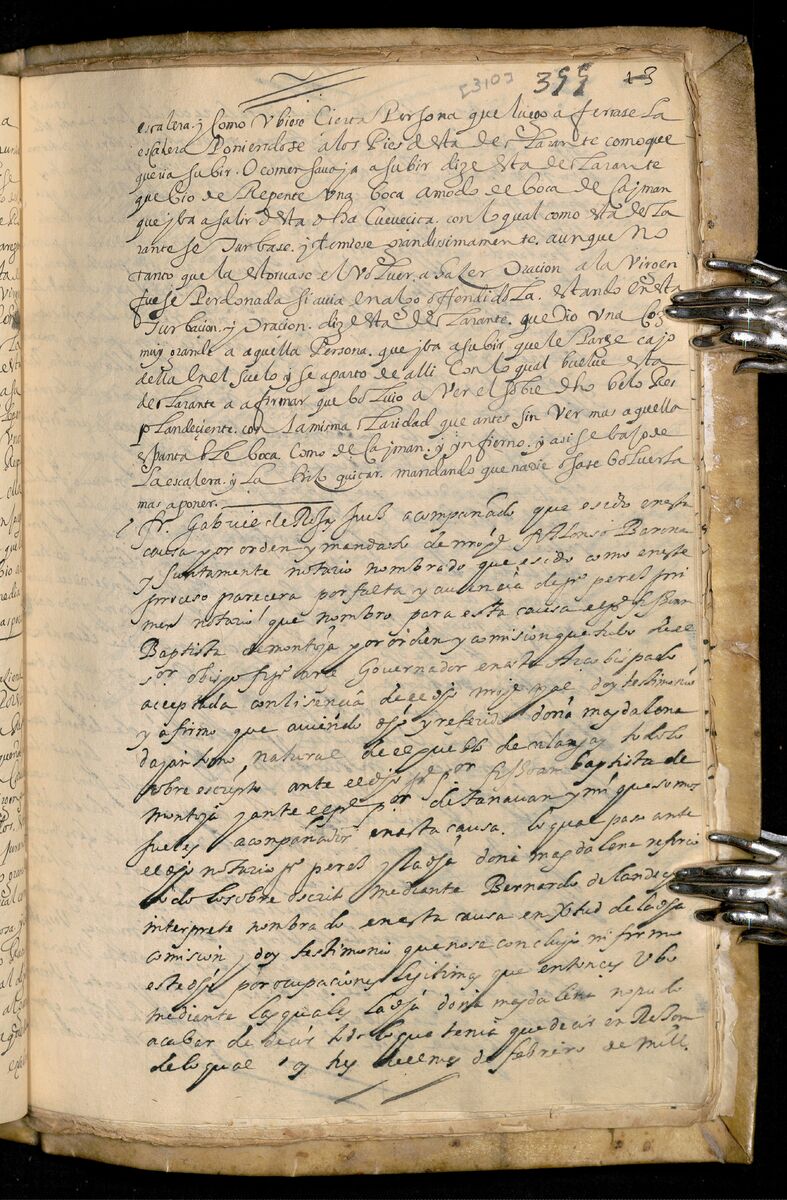 [310] 399 13
escalera. y Como Vbiese Cierta Persona que luego a ferrase La
escalera Poniendose a los Pies desta declarante como que
queria subir. O comensaua ja a subir dize esta declarante
que bio de Repente Vna boca a modo de boca de Cajman
que yba a salir desta dha Cuevecita. con lo qual como esta decla
rante se Turbase. y temiose grandissimamente. aunque No
tanto que la estoruase el Voluer. a hazer Oracion a la Virgen
fuese Perdonada si auia en algo offendidola. estando en esta
Turbacion. y oracion. dize esta declarante. que Dio Vna Coz
muy grande a aquella Persona. que yba a subir que le Parece cajo
della en el suelo y se aparto de alli Con lo qual buelue esta
declarante a afirmar que boluio a Ver el sobre dho belo Res
plandeçiente. con la misma Claridad que antes sin Ver mas aquella
espantable boca como de Cajman. y ynfierno. y asi se baso de
La escalera. y La hizo quitar. mandando que nadie osase boluerla
mas a poner.
fr. Gabriel de Juez acompañado que e sido en esta
causa y por orden y mandado de fr Alonso Barona
y Juntamente notario nombrado que e sido como en este
proceso parecera por falta y ausencia de fr perez pri
mer notario que nombro para esta causa el pe fr Juan
Baptista de montoja y por orden y comision que tubo de el
sor obispo Governador en este Arzobispado
aceptada con lisencia de el dho doy testimonio
y afirmo que auiendo dho y referido doña magdalena
natural de el pueblo de y todo lo
sobre escripto ante el dho por fr Joan baptista de
montoja y ante el pe de Tanauan y mi que somos
jueces acompañados en esta causa. lo qual paso ante
el dho notario fr perez y la dha doña magdalena refirio
todo lo sobre escrito mediante Bernardo de
interprete nombrado en esta causa en virtud de la dha
comision, doy testimonio que no se concluyo ni firmo
este dho por ocupaciones legitimas que entonces Vbo
mediante las quales la dha doña magdalena no pudo
acabar de decir todo lo que tenia que decir en
de lo qual oy tres de el mes de febrero de mill.